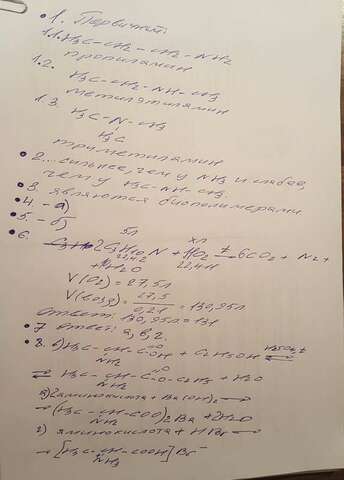 • 1. Первичный:
1.1. H₃C–CH₂–CH₂–NH₂
пропиламин
1.2. H₃C–CH₂–NH–CH₃
метилэтиламин
1.3. H₃C–N–CH₃
H₃C
триметиламин
• 2. ... сильнее, чем у NH₃ и слабее,
чем у H₃C–NH–CH₃.
• 3. являются биополимерами.
• 4 – а)
• 5 – б)
5л хл
• 6. 2C₃H₁₀N + O₂ t→ 6CO₂ + N₂ +
+ H₂O 22,4л
V(O₂) = 27,5л
V(возд) = 27,5/0,21 = 130,95л
ответ: 130,95л = 131
• 7 ответ: а, в, г.
• 8. б) H₃C–CH–C=O–OH + C₂H₅OH H₂SO₄, t ⇌
NH₂
⇌ H₃C–CH–C=O–O–C₂H₅ + H₂O
NH₂
в) 2аминокислота + Ba(OH)₂ →
→ (H₃C–CH–COO)₂Ba + 2H₂O
NH₂
г) аминокислота + HBr →
→ [H₃C–CH–COOH]Br⁻
NH₃